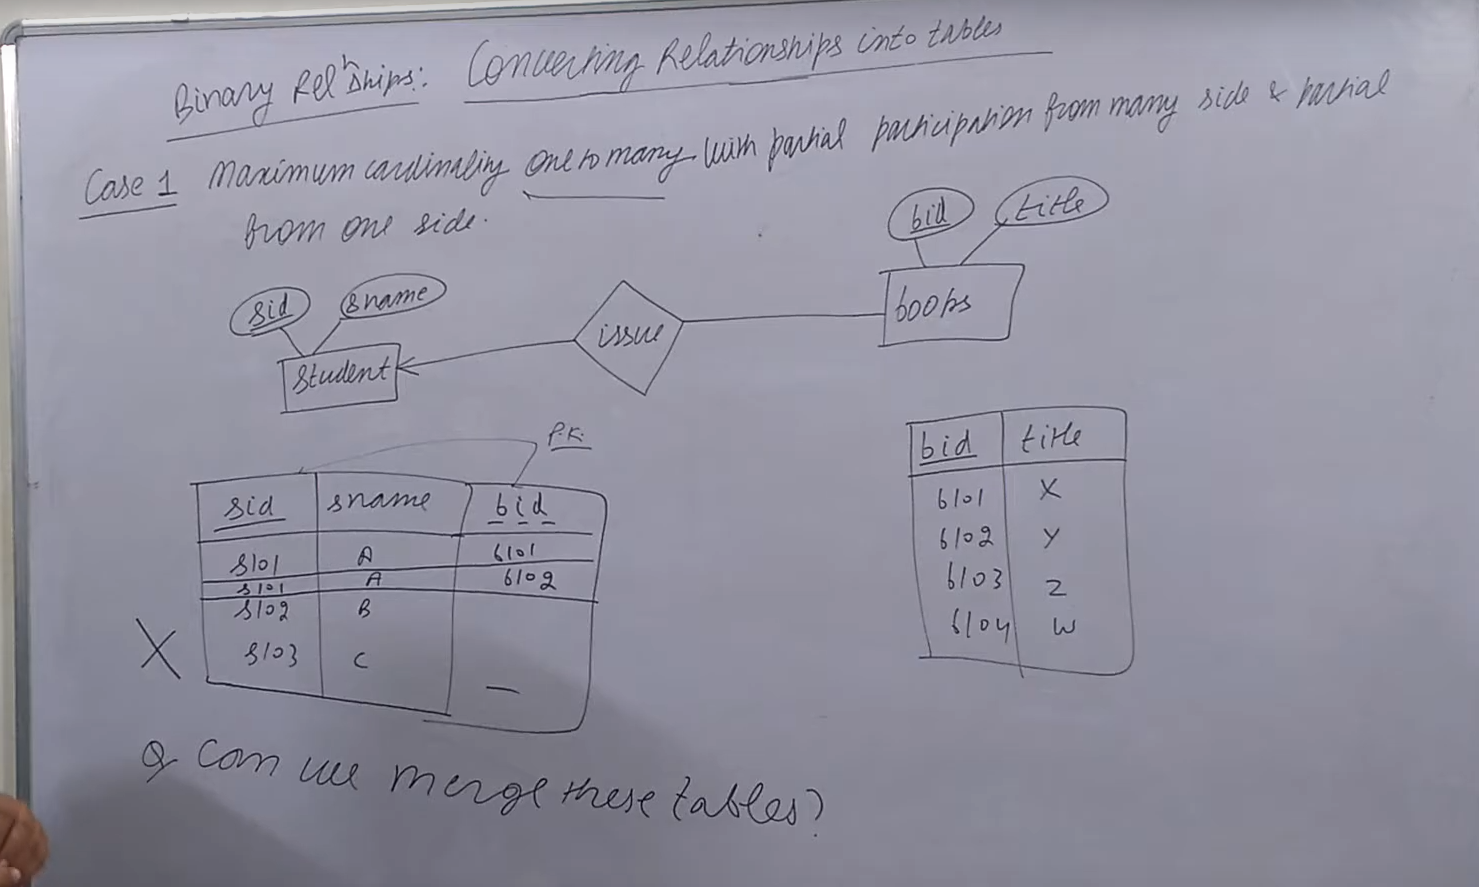 Binary Relnships: Converting Relationships into tables
Case 1 Maximum cardinality one to many with partial participation from many side & partial
from one side.
bid title
sid sname
books
issue
Student
P.K.
sid sname bid
s101 A b101
s101 A b102
s102 B
s103 C —
X
bid title
b101 X
b102 Y
b103 Z
b104 W
Q Can we merge these tables?